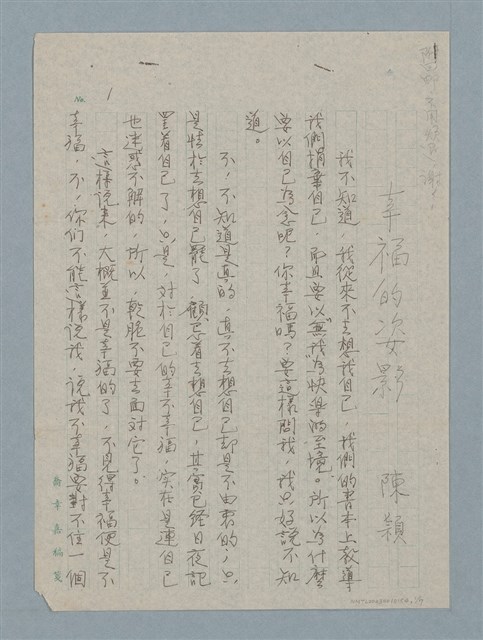 幸福的姿影
陳穎
我不知道，我從來不去想我自己，我們的書本上教導
我們捐棄自己，而且要以“無”我為快樂的至境。所以為什麼
要以自己為念呢？你幸福嗎？要這樣問我，我只好說不知
道。
不，不知道是真的，真不去想自己却是不由衷的，只
是怯於去想自己罷了，顧忌着去想自己，其實已經日夜記
罣着自己了，只是，對於自己的幸不幸福，實在是連自己
也迷惑不解的，所以，乾脆不要去面對它了。
這樣說來，大概並不是幸福的了，不見得幸福便是不
幸福，不，你们不能這樣說我，說我不幸福要對不住一個
No. 1